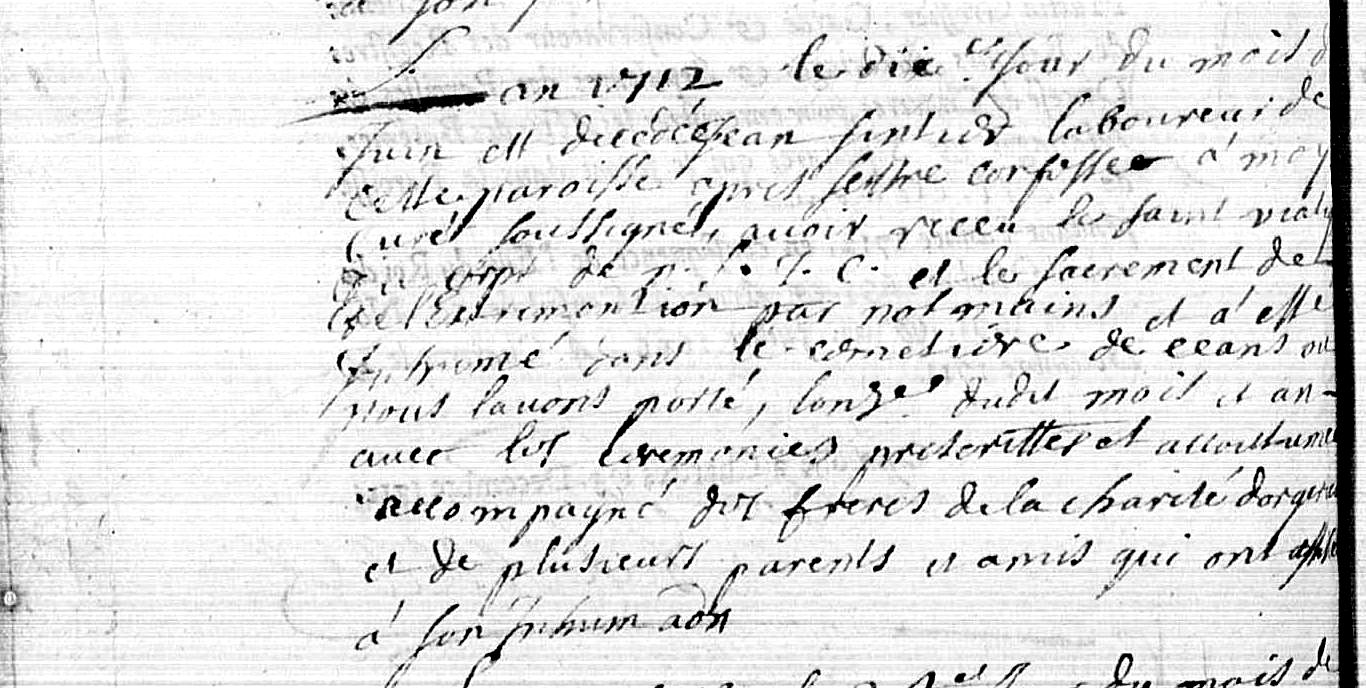 L'an 1712 le dixes jour du mois
Juin est decedé Jean laboureur de
cette paroisse apres sestre confessée a moy
curé soussigné, avoir receu le saint
du corps de n. s. J. C. et le sacrement de
de l'Extremontion par nos mains et a esté
Inhumé dans le cemetiere de ceans ou
nous lavons porté, lonze dudit mois et an
avec les ceremonies prescrittes et
accompagné des freres de la charité
et de plusieurs parents et amis qui ont
á son Inhumaon
du mois de